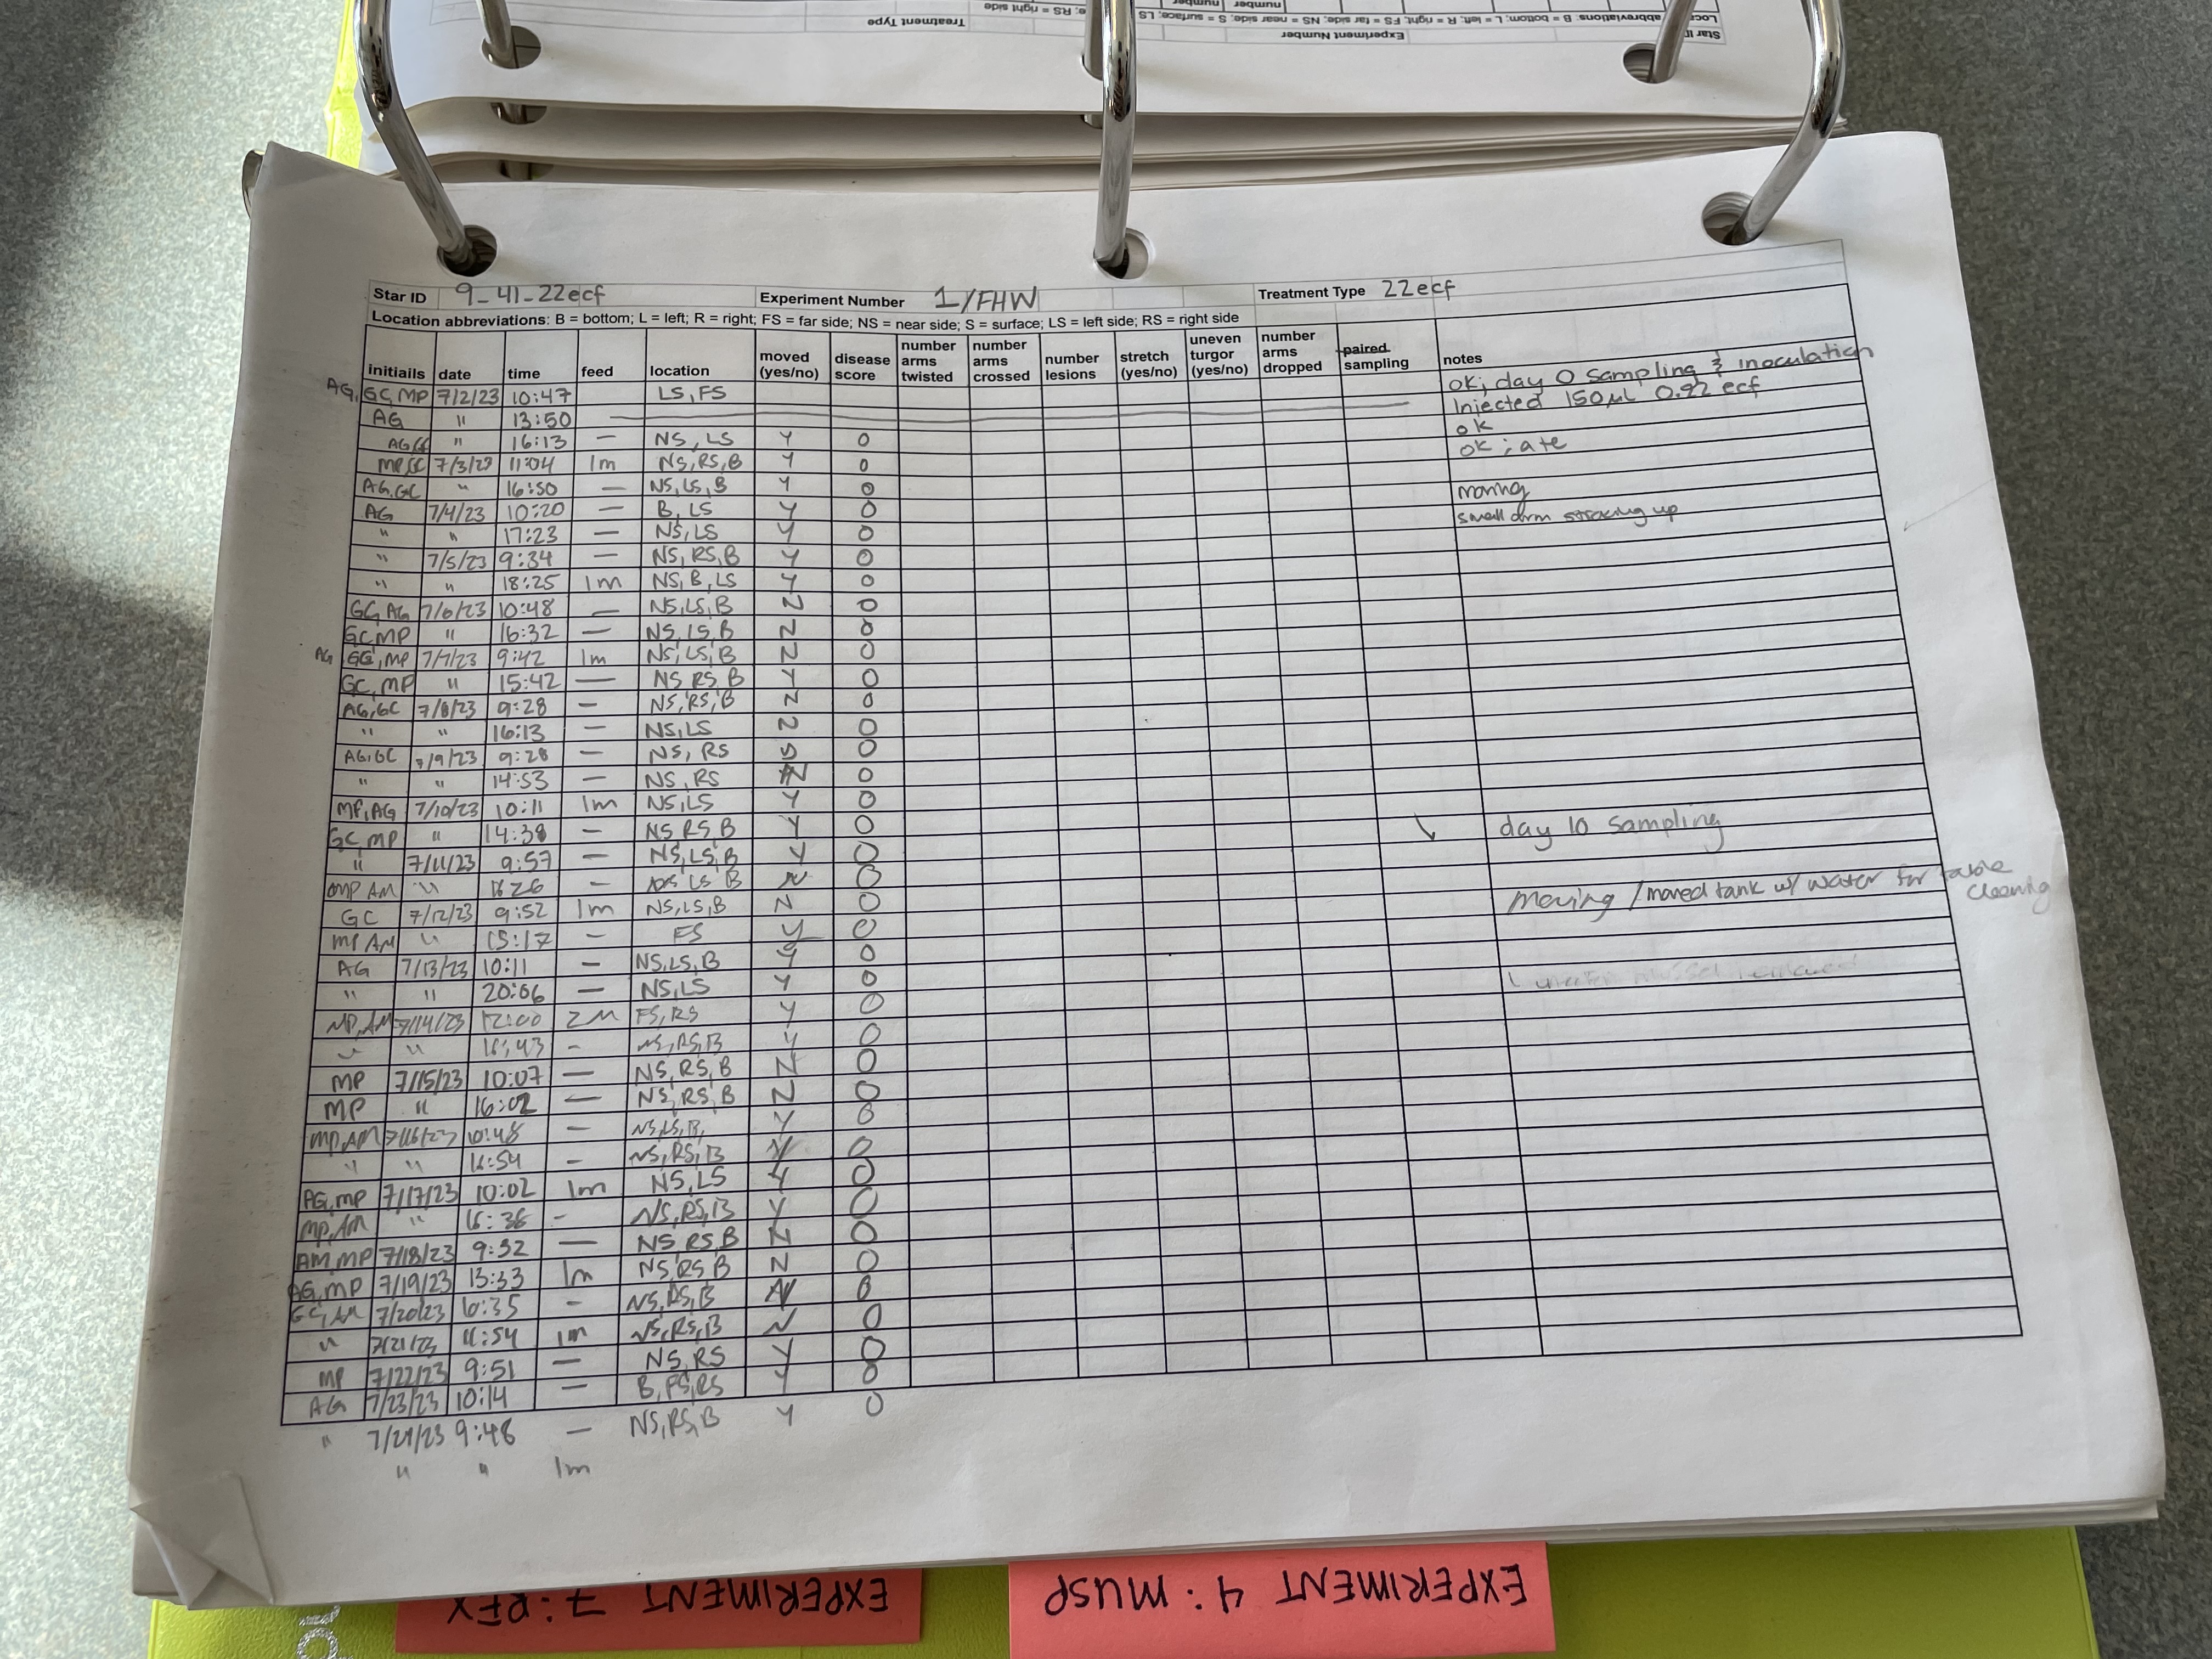 Star ID 9_41_22ecf Experiment Number 1/FHW Treatment Type 22ecf
Location abbreviations: B = bottom; L = left; R = right; FS = far side; NS = near side; S = surface; LS = left side; RS = right side
initiails date time feed location moved (yes/no) disease score number arms twisted number arms crossed number lesions stretch (yes/no) uneven turgor (yes/no) number arms dropped paired sampling notes
AG, GC, MP 7/2/23 10:47 LS, FS ok; day 0 sampling & inoculation
AG " 13:50 Injected 150µL 0.22 ecf
AG " 16:13 — NS, LS Y 0 ok
MP, GC 7/3/23 11:04 1m NS, RS, B Y 0 ok; ate
AG, GC " 16:50 — NS, LS, B Y 0
AG 7/4/23 10:20 — B, LS Y 0 moving
" " 17:23 — NS, LS Y 0 small arm up
" 7/5/23 9:34 — NS, RS, B Y 0
" " 18:25 1m NS, B, LS Y 0
GC, AG 7/6/23 10:48 — NS, LS, B N 0
GC, MP " 16:32 — NS, LS, B N 0
AG GC, MP 7/7/23 9:42 1m NS, LS, B N 0
GC, MP " 15:42 — NS, RS, B Y 0
AG, GC 7/8/23 9:28 — NS, RS, B N 0
" " 16:13 — NS, LS N 0
AG, GC 7/9/23 9:28 — NS, RS 0
" " 14:53 — NS, RS N 0
MP, AG 7/10/23 10:11 1m NS, LS Y 0
GC, MP " 14:38 — NS, RS, B Y 0 day 10 sampling
" 7/11/23 9:57 — NS, LS, B Y 0
MP AM " 16:26 — NS LS B N 0
GC 7/12/23 9:52 1m NS, LS, B N 0 moving / moved tank w/ water for table cleaning
MP AM " 15:17 — FS Y 0
AG 7/13/23 10:11 — NS, LS, B Y 0
" " 20:06 — NS, LS Y 0
MP, AM 7/14/23 12:00 2M FS, RS Y 0
" " 16:43 - NS, RS, B Y 0
MP 7/15/23 10:07 — NS, RS, B N 0
MP " 16:02 — NS, RS, B N 0
MP, AM 7/16/23 10:48 — NS, LS, B, Y 0
" " 16:54 - NS, RS, B 0
AG, MP 7/17/23 10:02 1m NS, LS Y 0
MP, AM " 16:36 - NS, RS, B Y 0
AM, MP 7/18/23 9:32 — NS RS, B N 0
AG, MP 7/19/23 13:33 1m NS, RS B N 0
GC, AM 7/20/23 10:35 - NS, RS, B N 0
" 7/21/23 11:54 1m NS, RS, B N 0
MP 7/22/23 9:51 — NS, RS Y 0
AG 7/23/23 10:14 — B, FS, RS Y 0
" 7/24/23 9:48 — NS, RS, B Y 0
" " 1m
EXPERIMENT 7: PFX
EXPERIMENT 4: MUSP
Experiment Number
Treatment Type